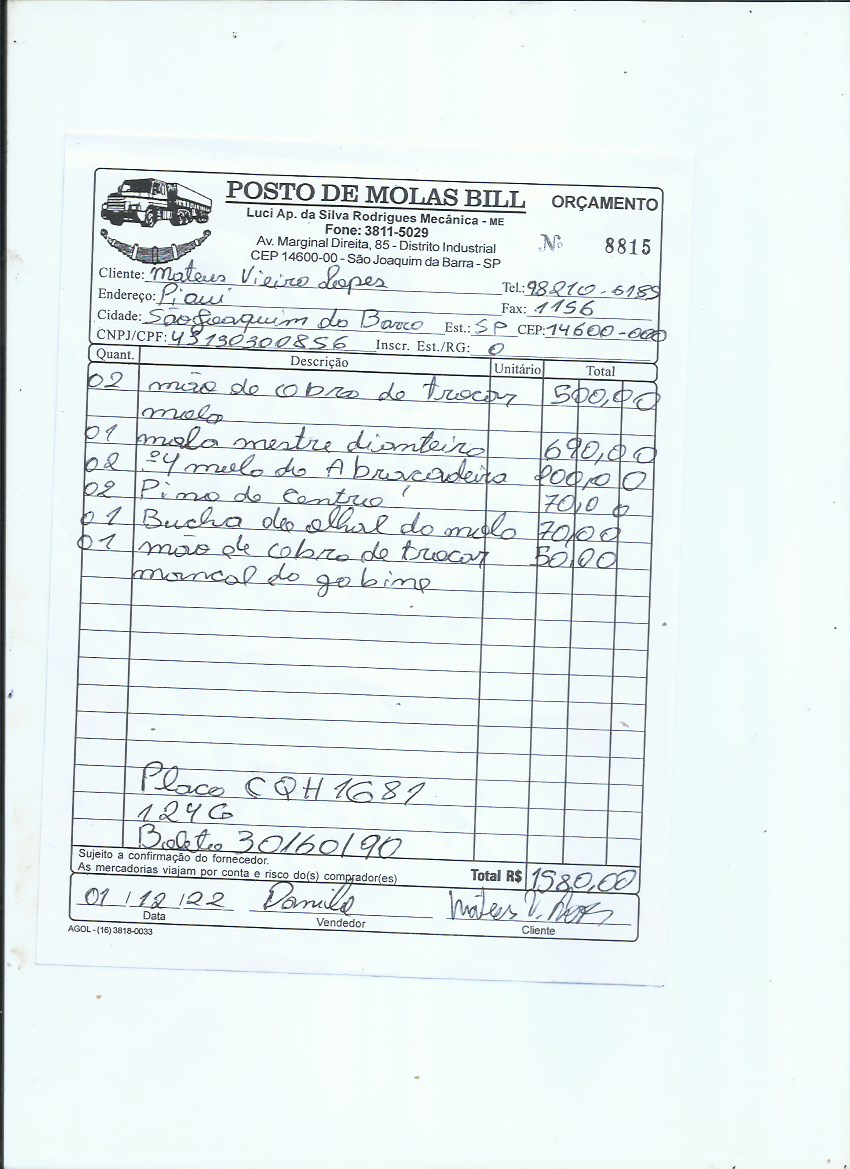 POSTO DE MOLAS BILL ORÇAMENTO
Luci Ap. da Silva Rodrigues Mecânica - ME
Fone: 3811-5029
Av. Marginal Direita, 85 - Distrito Industrial
CEP 14600-00 - São Joaquim da Barra - SP
Nº 8815
Cliente: Mateus Vieira Lopes Tel.: 98210-6189
Endereço: Piauí Fax: 1156
Cidade: São Joaquim da Barra Est.: SP CEP: 14600-000
CNPJ/CPF: 43130300856 Inscr. Est./RG: 0
Quant. Descrição Unitário Total
02 mão de cobra de trocar 500,00
mola
01 mola mestre dianteira 690,00
02 º4 mola da Abracadeira 200,00
02 Pino de centro 70,00
01 Bucha do olhal da mola 70,00
01 mão de cobra de trocar 50,00
mancal da gabine
Placa CQH1681
124G
Boleto 30/60/90
Sujeito a confirmação do fornecedor.
As mercadorias viajam por conta e risco do(s) comprador(es)
Total R$ 1580,00
01/12/22 Danilo Mateus V. Lopes
Data Vendedor Cliente
AGOL - (16) 3818-0033